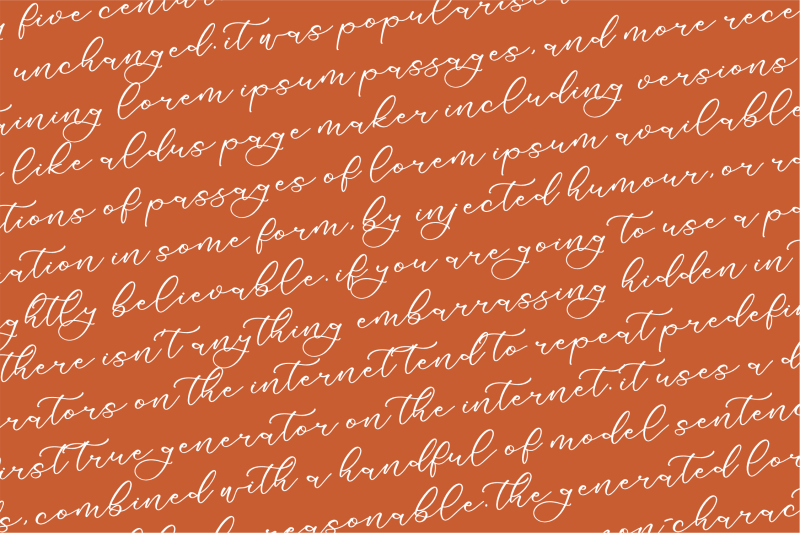 five centur
unchanged. it was popularis
aining lorem ipsum passages, and more rece
like aldus page maker including versions
tions of passages of lorem ipsum available
ation in some form, by injected humour, or ra
ghtly believable. if you are going to use a pa
there isn't anything embarrassing hidden in
rators on the internet tend to repeat predefin
first true generator on the internet. it uses a d
s, combined with a handful of model sentenc
reasonable. the generated lor
non-charac